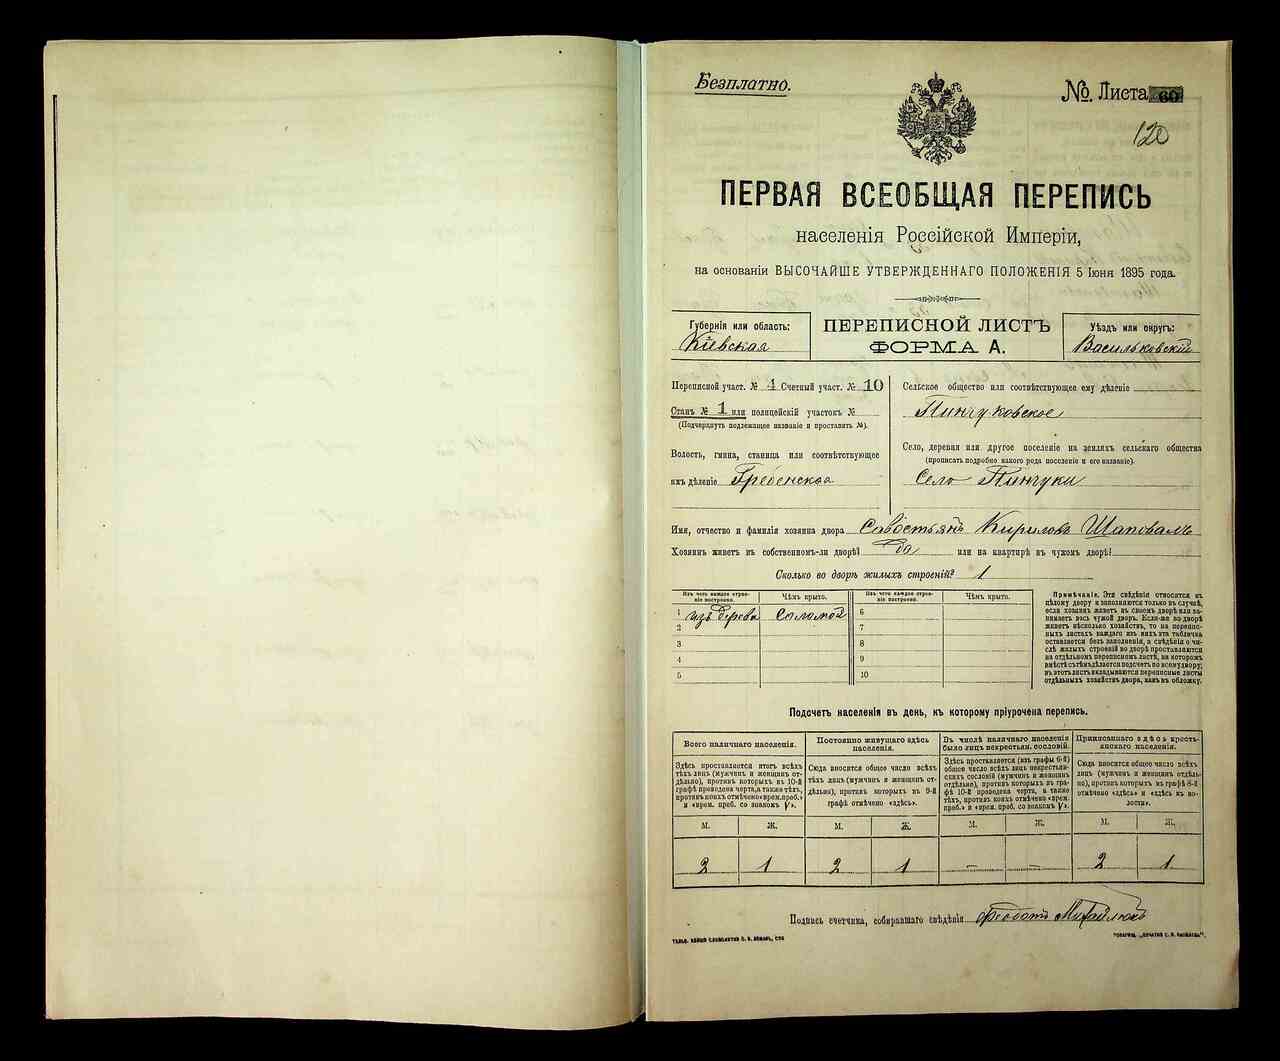 Безплатно.
№. Листа 60
120
ПЕРВАЯ ВСЕОБЩАЯ ПЕРЕПИСЬ
населенія Россійской Имперіи,
на основаніи ВЫСОЧАЙШЕ УТВЕРЖДЕННАГО ПОЛОЖЕНІЯ 5 Іюня 1895 года.
Губернія или область:
Кіевская
ПЕРЕПИСНОЙ ЛИСТЪ
ФОРМА А.
Уѣздъ или округъ:
Васильковскій
Переписной участ. № 4 Счетный участ. № 10
Станъ № 1 или полицейскій участокъ №
(Подчеркнуть подлежащее названіе и проставить №).
Волость, гмина, станица или соотвѣтствующее
имъ дѣленіе Гребенская
Сельское общество или соотвѣтствующее ему дѣленіе
Пинчуковское
Село, деревня или другое поселеніе на земляхъ сельскаго общества
(прописать подробно какого рода поселеніе и его названіе).
Село Пинчуки
Имя, отчество и фамилія хозяина двора Савостьянъ Кириловъ Шаповалъ
Хозяинъ живетъ въ собственномъ-ли дворѣ? Да или на квартирѣ въ чужомъ дворѣ?
Сколько во дворѣ жилыхъ строеній? 1
Изъ чего каждое строе-
ніе построено.
Чѣмъ крыто.
Изъ чего каждое строе-
ніе построено.
Чѣмъ крыто.
1 изъ дерева соломой 6
2 7
3 8
4 9
5 10
Примѣчаніе. Эти свѣдѣнія относятся къ
цѣлому двору и заполняются только въ случаѣ,
если хозяинъ живетъ въ своемъ дворѣ или за-
нимаетъ весь чужой дворъ. Если-же во дворѣ
живетъ нѣсколько хозяйствъ, то на перепис-
ныхъ листахъ каждаго изъ нихъ эта табличка
оставляется безъ заполненія, а свѣдѣнія о чи-
слѣ жилыхъ строеній во дворѣ проставляются
на отдѣльномъ переписномъ листѣ, на которомъ
вмѣстѣ съ тѣмъ дѣлается подсчетъ по всему двору;
въ этотъ листъ вкладываются переписные листы
отдѣльныхъ хозяйствъ двора, какъ въ обложку.
Подсчетъ населенія въ день, къ которому пріурочена перепись.
Всего наличнаго населенія.
Здѣсь проставляется итогъ всѣхъ
тѣхъ лицъ (мужчинъ и женщинъ от-
дѣльно), противъ которыхъ въ 10-й
графѣ проведена черта, а также тѣхъ,
противъ коихъ отмѣчено «врем. преб.»
и «врем. преб. со знакомъ V».
Постоянно живущаго здѣсь
населенія.
Сюда вносится общее число всѣхъ
тѣхъ лицъ (мужчинъ и женщинъ от-
дѣльно), противъ которыхъ въ 9-й
графѣ отмѣчено «здѣсь».
Въ числѣ наличнаго населенія
было лицъ некрестьян. сословій.
Здѣсь проставляется (изъ графы 6-й)
общее число всѣхъ лицъ некрестьян-
скихъ сословій (мужчинъ и женщинъ
отдѣльно), противъ которыхъ въ гра-
фѣ 10-й проведена черта, а также
тѣхъ, противъ коихъ отмѣчено «врем.
преб.» и «врем. преб. со знакомъ V».
Приписаннаго здѣсь кресть-
янскаго населенія.
Сюда вносится общее число всѣхъ
лицъ (мужчинъ и женщинъ отдѣль-
но), противъ которыхъ въ графѣ 8-й
отмѣчено «здѣсь» и «здѣсь въ во-
лости».
М. Ж. М. Ж. М. Ж. М. Ж.
2 1 2 1 — — 2 1
Подпись счетчика, собиравшаго свѣдѣнія Феодотъ Михайлюкъ